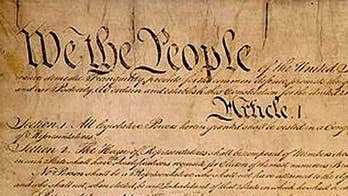 We the People of the United S
domestic Tranquility, provide for the common defence, promote
and our Posterity, do ordain and establish this Constitution for the United S
Article. I.
Section. 1. All legislative Powers herein granted shall be vested in a Cong
Representatives.
Section. 2. The House of Representatives shall be composed of Members
in each State shall have Qualifications requisite for Electors of the most numerous Branch
No Person shall be a Representative who shall not have attained to the
and who shall not, when elected, be an Inhabitant of that State in which